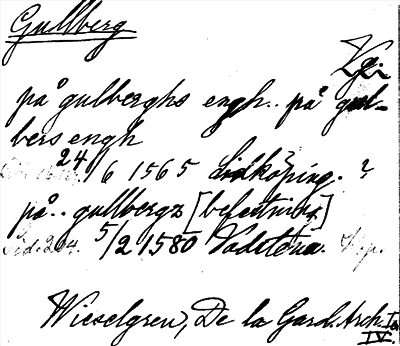 Gullberg
på gulberghs engh.. på gul-
bers engh
24/6 1565 Lidköping. ?
på.. gullbergz [befestning]
Sid. 204. 5/2 1580 Vadstena.
Wieselgren, De la Gard. Arch. I
IV.